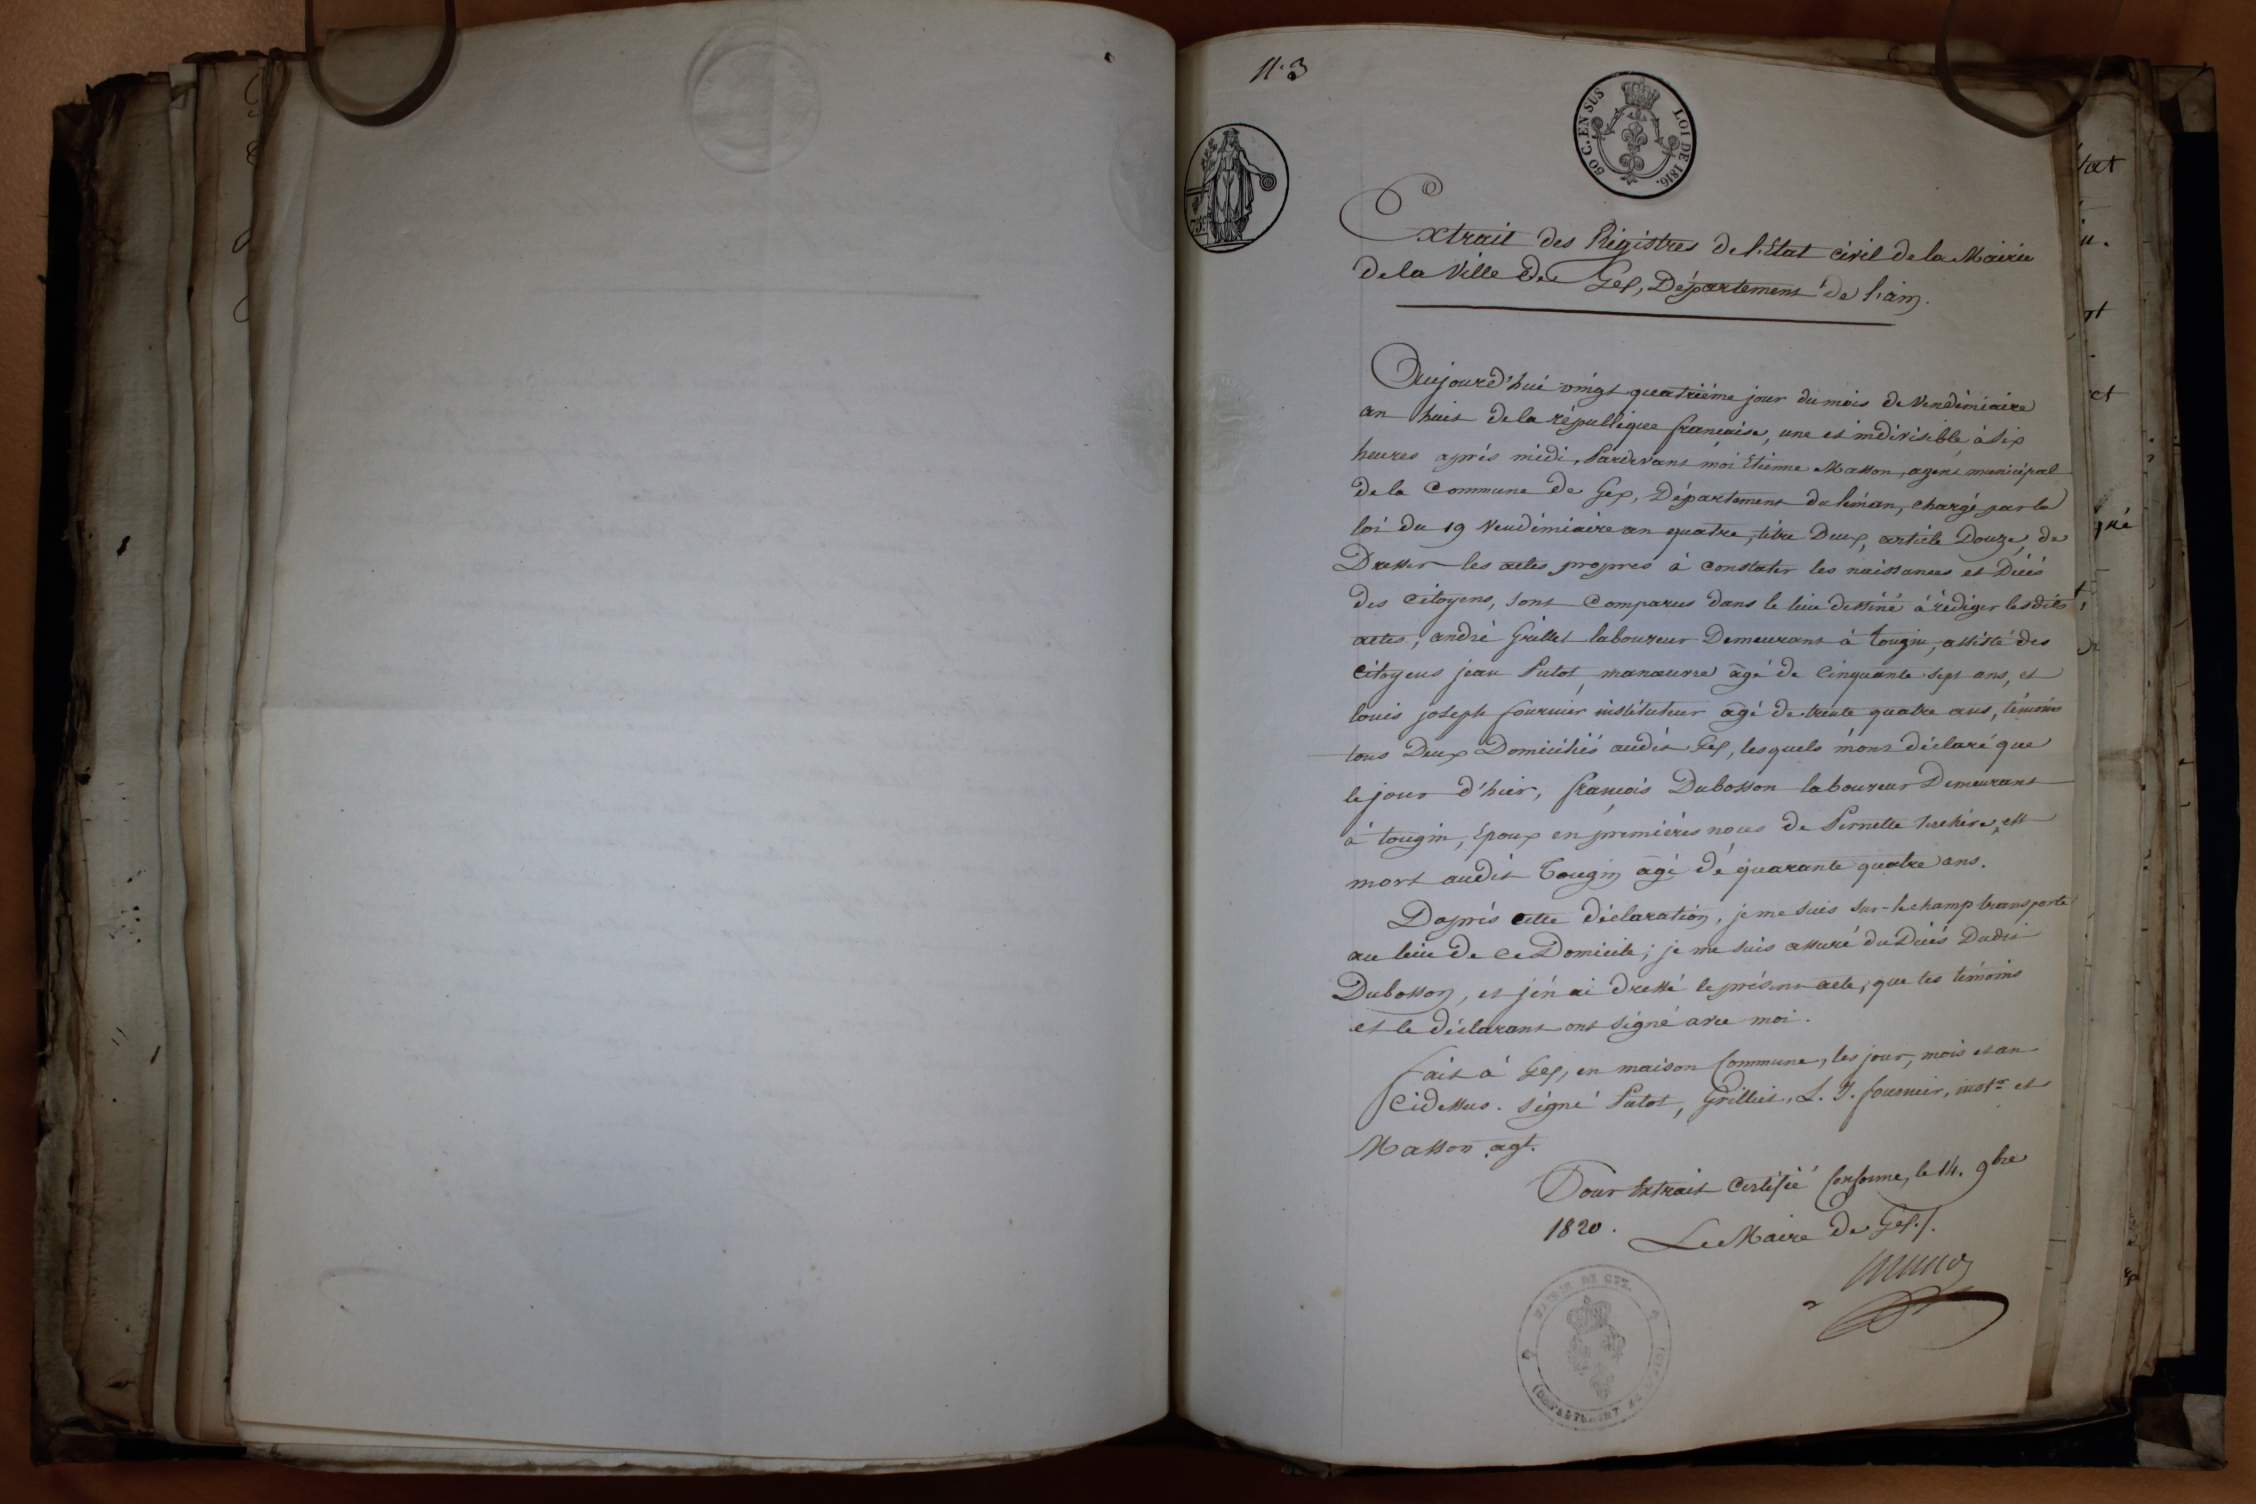 N.° 3
50 C. EN SUS
LOI DE 1816.
75 C
Extrait des Régistres de l'Etat civil de la Mairie
de la Ville de Gex, Département de l'ain.
Aujourd'hui vingt quatrième jour du mois de Vendémiaire
an huit de la république française, une et indivisible, à six
heures après midi, Pardevant moi Etienne Masson, agent municipal
de la Commune de Gex, Département du léman, chargé par la
loi du 19 Vendémiaire an quatre, titre Deux, article Douze, de
Dresser les actes propres à constater les naissances et Décés
des Citoyens, sont Comparus dans le lieu destiné à rédiger lesdits
actes, andré Grillet laboureur Demeurant à tougin, assisté des
Citoyens jean Putot, manœuvre âgé de Cinquante sept ans, et
louis joseph fournier instituteur âgé de trente quatre ans, témoins
tous Deux Domiciliés audit Gex, lesquels m'ont déclaré que
le jour d'hier, françois Dubosson laboureur Demeurant
à tougin, Epoux en premières noces de Pernette est
mort audit Tougin âgé de quarante quatre ans.
D'après cette déclaration, je me suis sur-le champ transporté
au lieu de ce Domicile; je me suis assuré du Décés Dudit
Dubosson, et j'en ai dressé le présent acte, que les témoins
et le déclarant ont signé avec moi.
fait à Gex, en maison Commune, les jour, mois et an
Cidessus. signé Putot, Grillet, L. J. fournier, inst.r et
Masson agt.
Pour Extrait Certifié Conforme, le 14. 9bre
1820.
Le Maire de Gex./.
MAIRIE DE GEX.
DÉPARTEMENT DE L'AIN